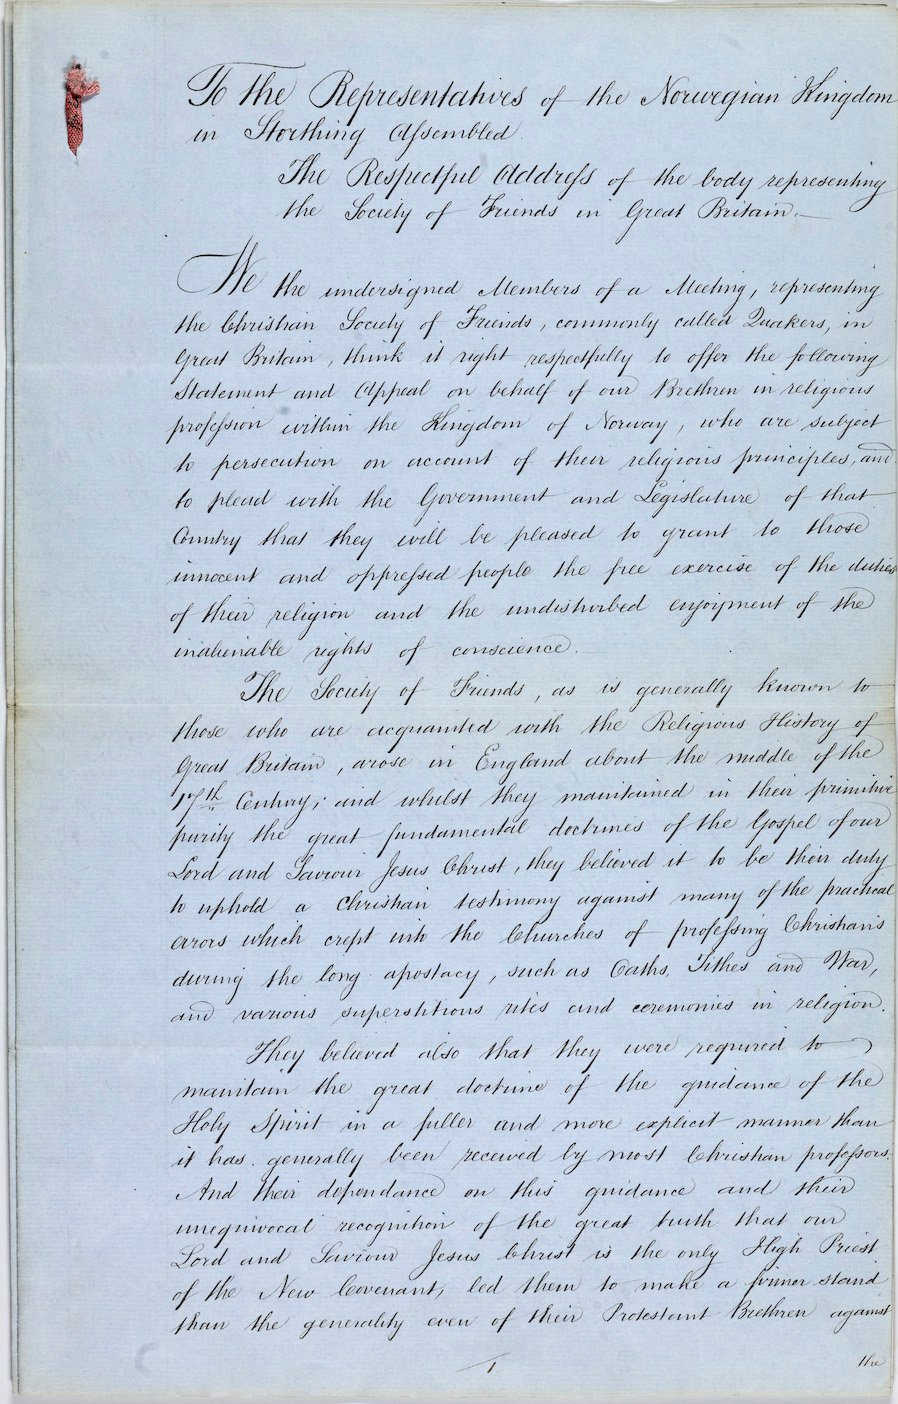 To the Representatives of the Norwegian Kingdom
in Storthing Assembled.
The Respectful Address of the body representing
the Society of Friends in Great Britain.
We the undersigned Members of a Meeting, representing
the Christian Society of Friends, commonly called Quakers, in
Great Britain, think it right respectfully to offer the following
Statement and Appeal on behalf of our Brethren in religious
profession within the Kingdom of Norway, who are subject
to persecution on account of their religious principles, and
to plead with the Government and Legislature of that
Country that they will be pleased to grant to those
innocent and oppressed people the free exercise of the duties
of their religion and the undisturbed enjoyment of the
inalienable rights of conscience.
The Society of Friends, as is generally known to
those who are acquainted with the Religious History of
Great Britain, arose in England about the middle of the
17th Century; and whilst they maintained in their primitive
purity the great fundamental doctrines of the Gospel of our
Lord and Saviour Jesus Christ, they believed it to be their duty
to uphold a christian testimony against many of the practical
errors which crept into the Churches of professing Christians
during the long apostacy, such as Oaths, Tithes and War,
and various superstitious rites and ceremonies in religion.
They believed also that they were required to
maintain the great doctrine of the guidance of the
Holy Spirit in a fuller and more explicit manner than
it has generally been received by most Christian professors.
And their dependance on this guidance and their
unequivocal recognition of the great truth that our
Lord and Saviour Jesus Christ is the only High Priest
of the New Covenant, led them to make a firmer stand
than the generality even of their Protestant Brethren against
1.
the